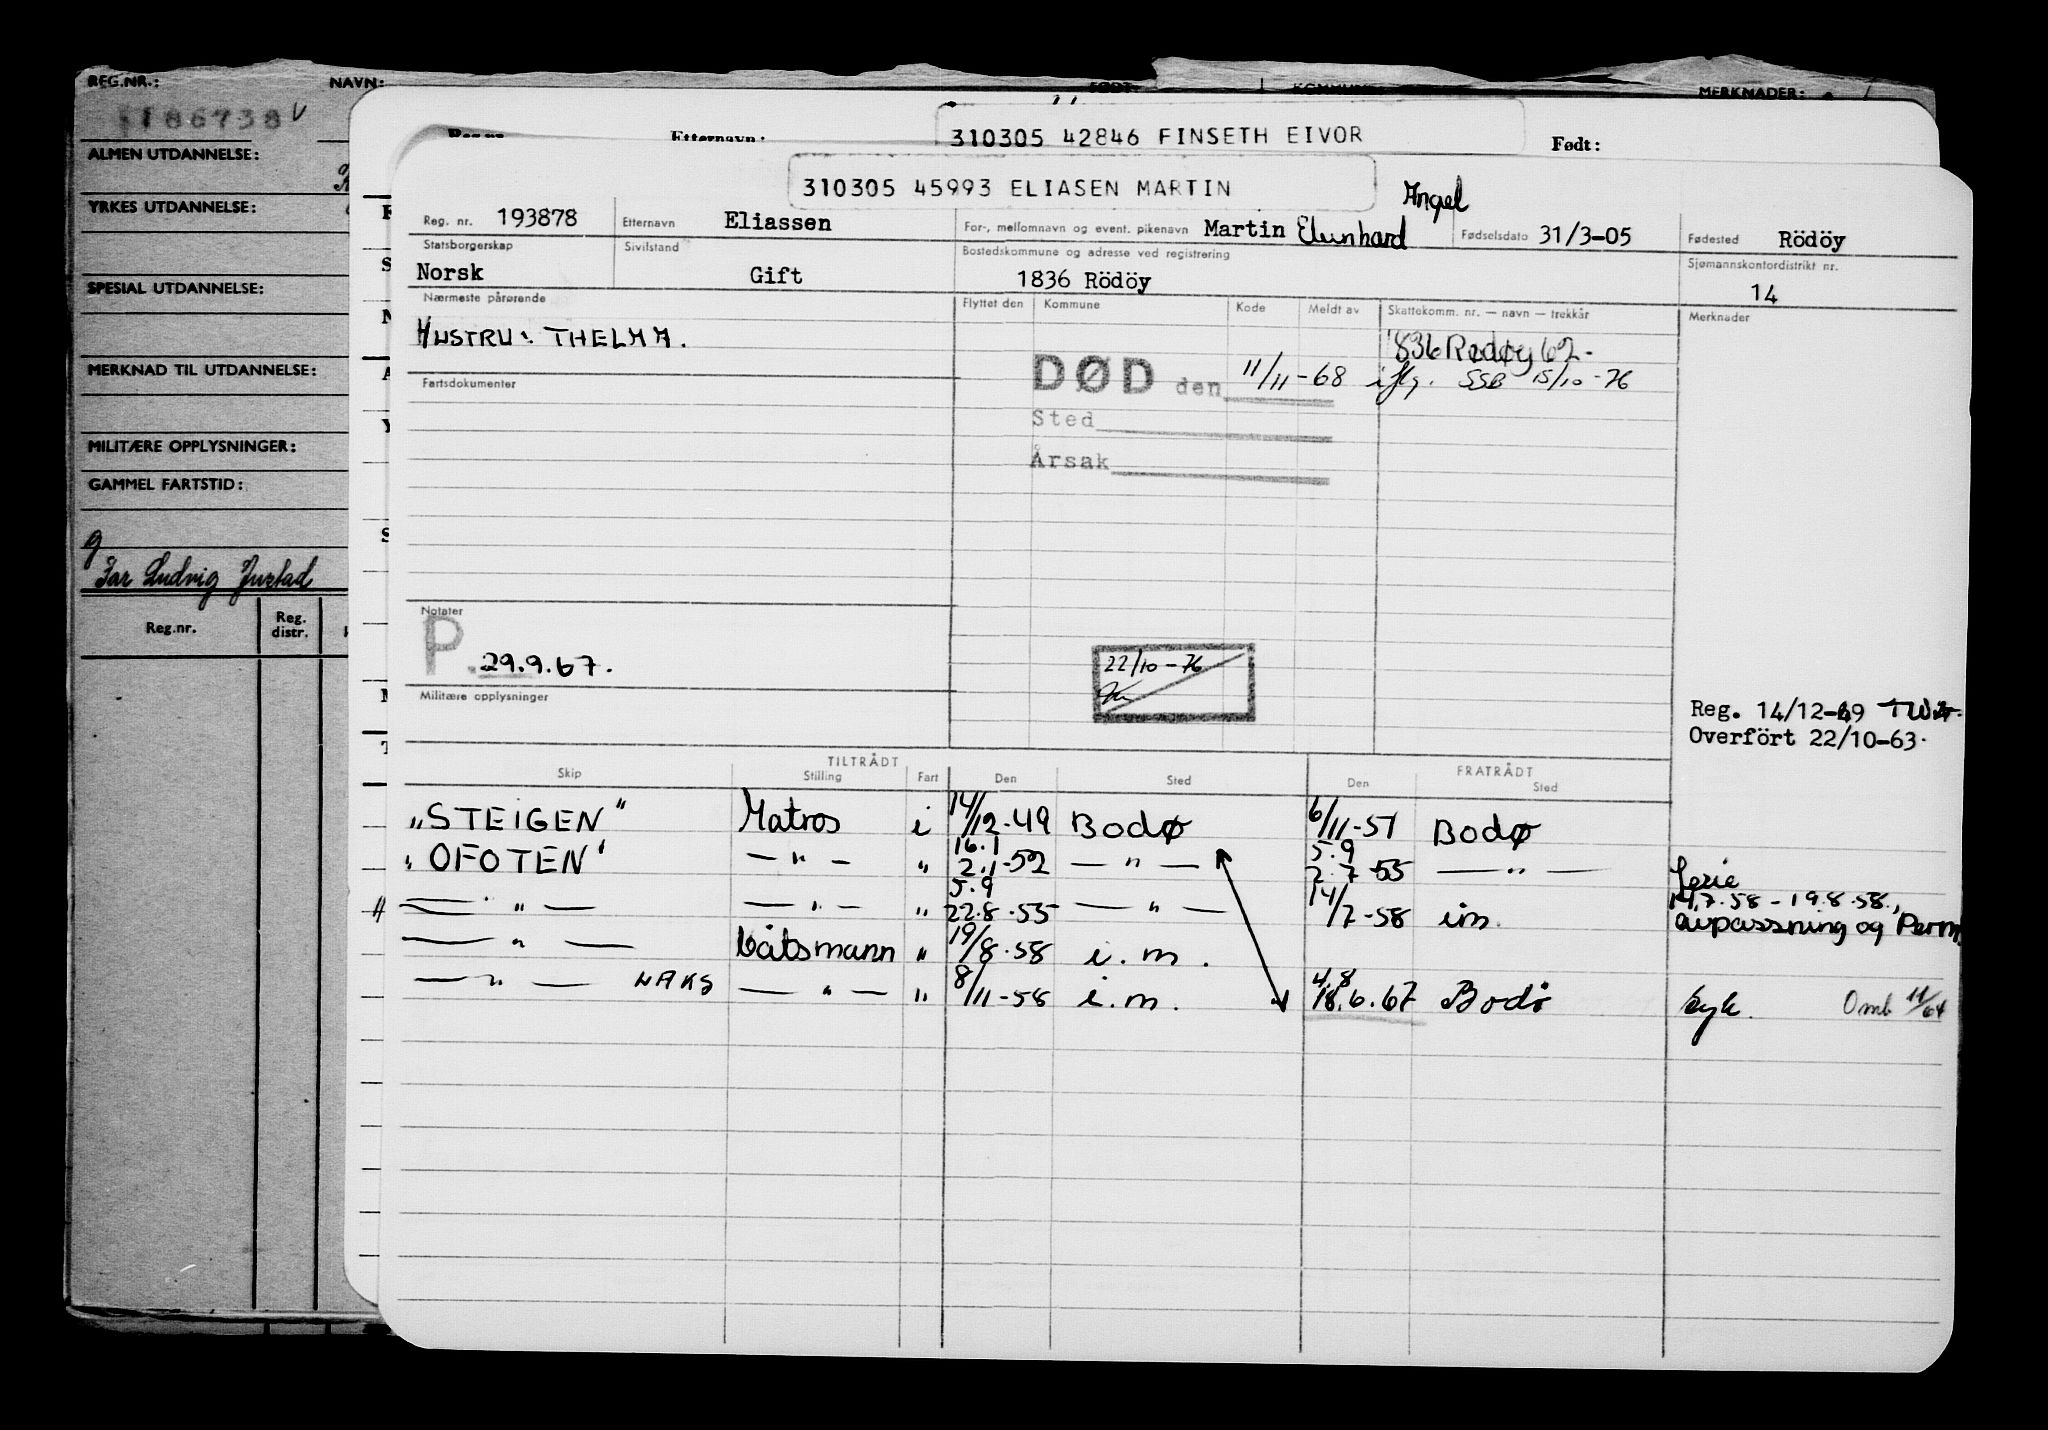 REG.NR.: NAVN: MERKNADER:
186738 V
ALMEN UTDANNELSE:
YRKES UTDANNELSE:
SPESIAL UTDANNELSE:
MERKNAD TIL UTDANNELSE:
MILITÆRE OPPLYSNINGER:
GAMMEL FARTSTID:
Far Ludvig Justad
Reg.nr. Reg. distr.
Etternavn: Født:
310305 42846 FINSETH EIVOR
310305 45993 ELIASEN MARTIN
Angel
Reg. nr. 193878 Etternavn Eliassen For-, mellomnavn og event. pikenavn Martin Fødselsdato 31/3-05 Fødested Rödöy
Statsborgerskap Norsk Sivilstand Gift Bostedskommune og adresse ved registrering 1836 Rödöy Sjømannskontordistrikt nr. 14
Nærmeste pårørende Flyttet den Kommune Kode Meldt av Skattekomm. nr. — navn — trekkår Merknader
HUSTRU: THELMA. 1836 Rødøy 62.
DØD den 11/11-68 iflg. SSB 15/10-76
Fartsdokumenter
Sted
Årsak
Notater
P. 29.9.67.
22/10-76
Militære opplysninger
Reg. 14/12-49
Overfört 22/10-63.
TILTRÅDT FRATRÅDT
Skip Stilling Fart Den Sted Den Sted
"STEIGEN" Matros i 14/12-49 Bodø 6/11-51 Bodø
16.1 5.9
"OFOTEN" — " — " 2.1-52 — " — 2.7-55 — " —
5.9 Ferie
— " — — " — " 22.8.55 — " — 14/7-58 i.m. 14.7.58 - 19.8.58., avpassning og Perm.
— " — Båtsmann " 19/8.58 i.m.
4.8
— " — NAKS — " — " 8/11-58 i.m. 18.6.67 Bodö syk. Omb 11/64